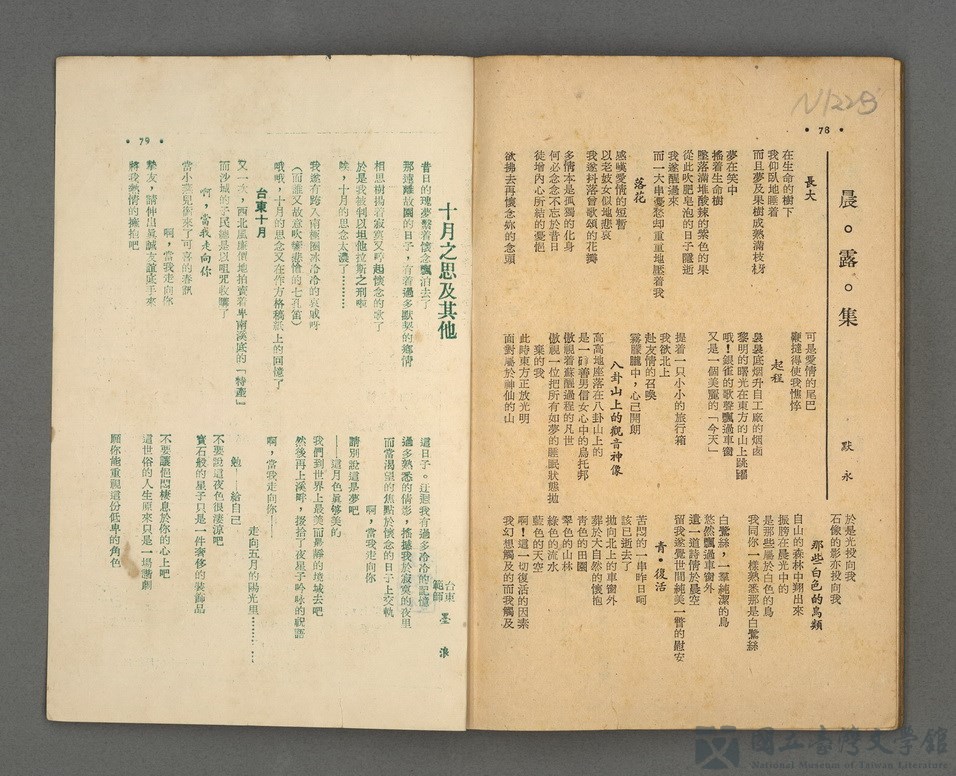 N1223
• 78 •
晨。露。集
默永
長大
在生命的樹下
我仰臥地睡着
而且夢及果樹成熟滿枝枒
夢在笑中
搖着生命樹
墜落滿堆酸辣的紫色的果
從此吹肥皂泡的日子隱逝
我遂醒過來
而一大串憂愁却重重地壓着我
落花
感嘆愛情的短暫
以老妓女似地悲哀
我遂抖落曾歌頌的花瓣
多情本是孤獨的化身
何必念念不忘於昔日
徒增內心所結的憂悒
欲拂去再懷念妳的念頭
可是愛情的尾巴
鞭撻得使我憔悴
起程
裊裊底烟升自工廠的烟囱
黎明的曙光在東方的山上跳躍
哦!銀雀的歌聲飄過車窗
又是一個美麗的「今天」
提着一只小小的旅行箱
我欲北上
赴友情的召喚
霧朦朧中,心已開朗
八卦山上的觀音神像
高高地座落在八卦山上的
是一羣善男信女心中的烏托邦
傲視着蘇醒過程的凡世
傲視一位把所有如夢的睡眠狀態拋
棄的我
此時東方正放光明
面對屬於神仙的山
於是光投向我
石像的影亦投向我
那些白色的鳥類
自山的森林中翔出來
振膀在晨光中的
是那些屬於白色的鳥
我同你一樣熟悉那是白鷺絲
白鷺絲,一羣純潔的鳥
悠然飄過車窗外
這一道詩情於晨空
留我遂覺世間純美一瞥的慰安
青・復活
苦悶的一串昨日呵
該已逝去了
拋向北上的車窗外
葬於大自然的懷抱
青色的田園
翠色的山林
綠色的流水
藍色的天空
啊!這一切復活的因素
我幻想觸及的而我觸及
• 79 •
十月之思及其他
台東
範師
墨浪
昔日的瑰夢繫着懷念飄泊去了
那遠離故園的日子,有着過多默契的鄉情
相思樹揚着寂寞又哼起懷念的歌了
於是我被制以坦他拉斯之刑啦
唉,十月的思念太濃了⋯⋯⋯
我遂有跨入南極圈冰冷冷的哀戚呀
(而誰又故意吹瘦悲愴的七孔笛)
哦哦,十月的思念又在作方格稿紙上的回憶了
台東十月
又一次,西北風廉價地拍賣着卑南溪底的「特產」
而沙城的子民總是以咀咒收購了
啊,當我走向你
當小燕兒銜來了可喜的春訊
啊,當我走向你
摯友,請伸出眞誠友誼底手來
將我熱情的擁抱吧
這日子。迂迴我有過多冷冷的記憶
過多熟悉的倩影,搖撼我於寂寞的夜里
而當渴望的焦點於懷念的日子上交軌
啊,當我走向你
請別說這是夢吧
——這月色眞够美的
我們到世界上最美而最靜的境域去吧
然後再上溪畔,掇拾了夜星子吟咏的祝語
啊,當我走向你——
走向五月的陽光里⋯⋯⋯⋯
勉——給自己
不要說這夜色很淒涼吧
寶石般的星子只是一件奢侈的裝飾品
不要讓悒悶棲息於你的心上吧
這世俗的人生原來只是一場諧劇
願你能重視這份低卑的角色
國立臺灣文學館
National Museum of Taiwan Literature